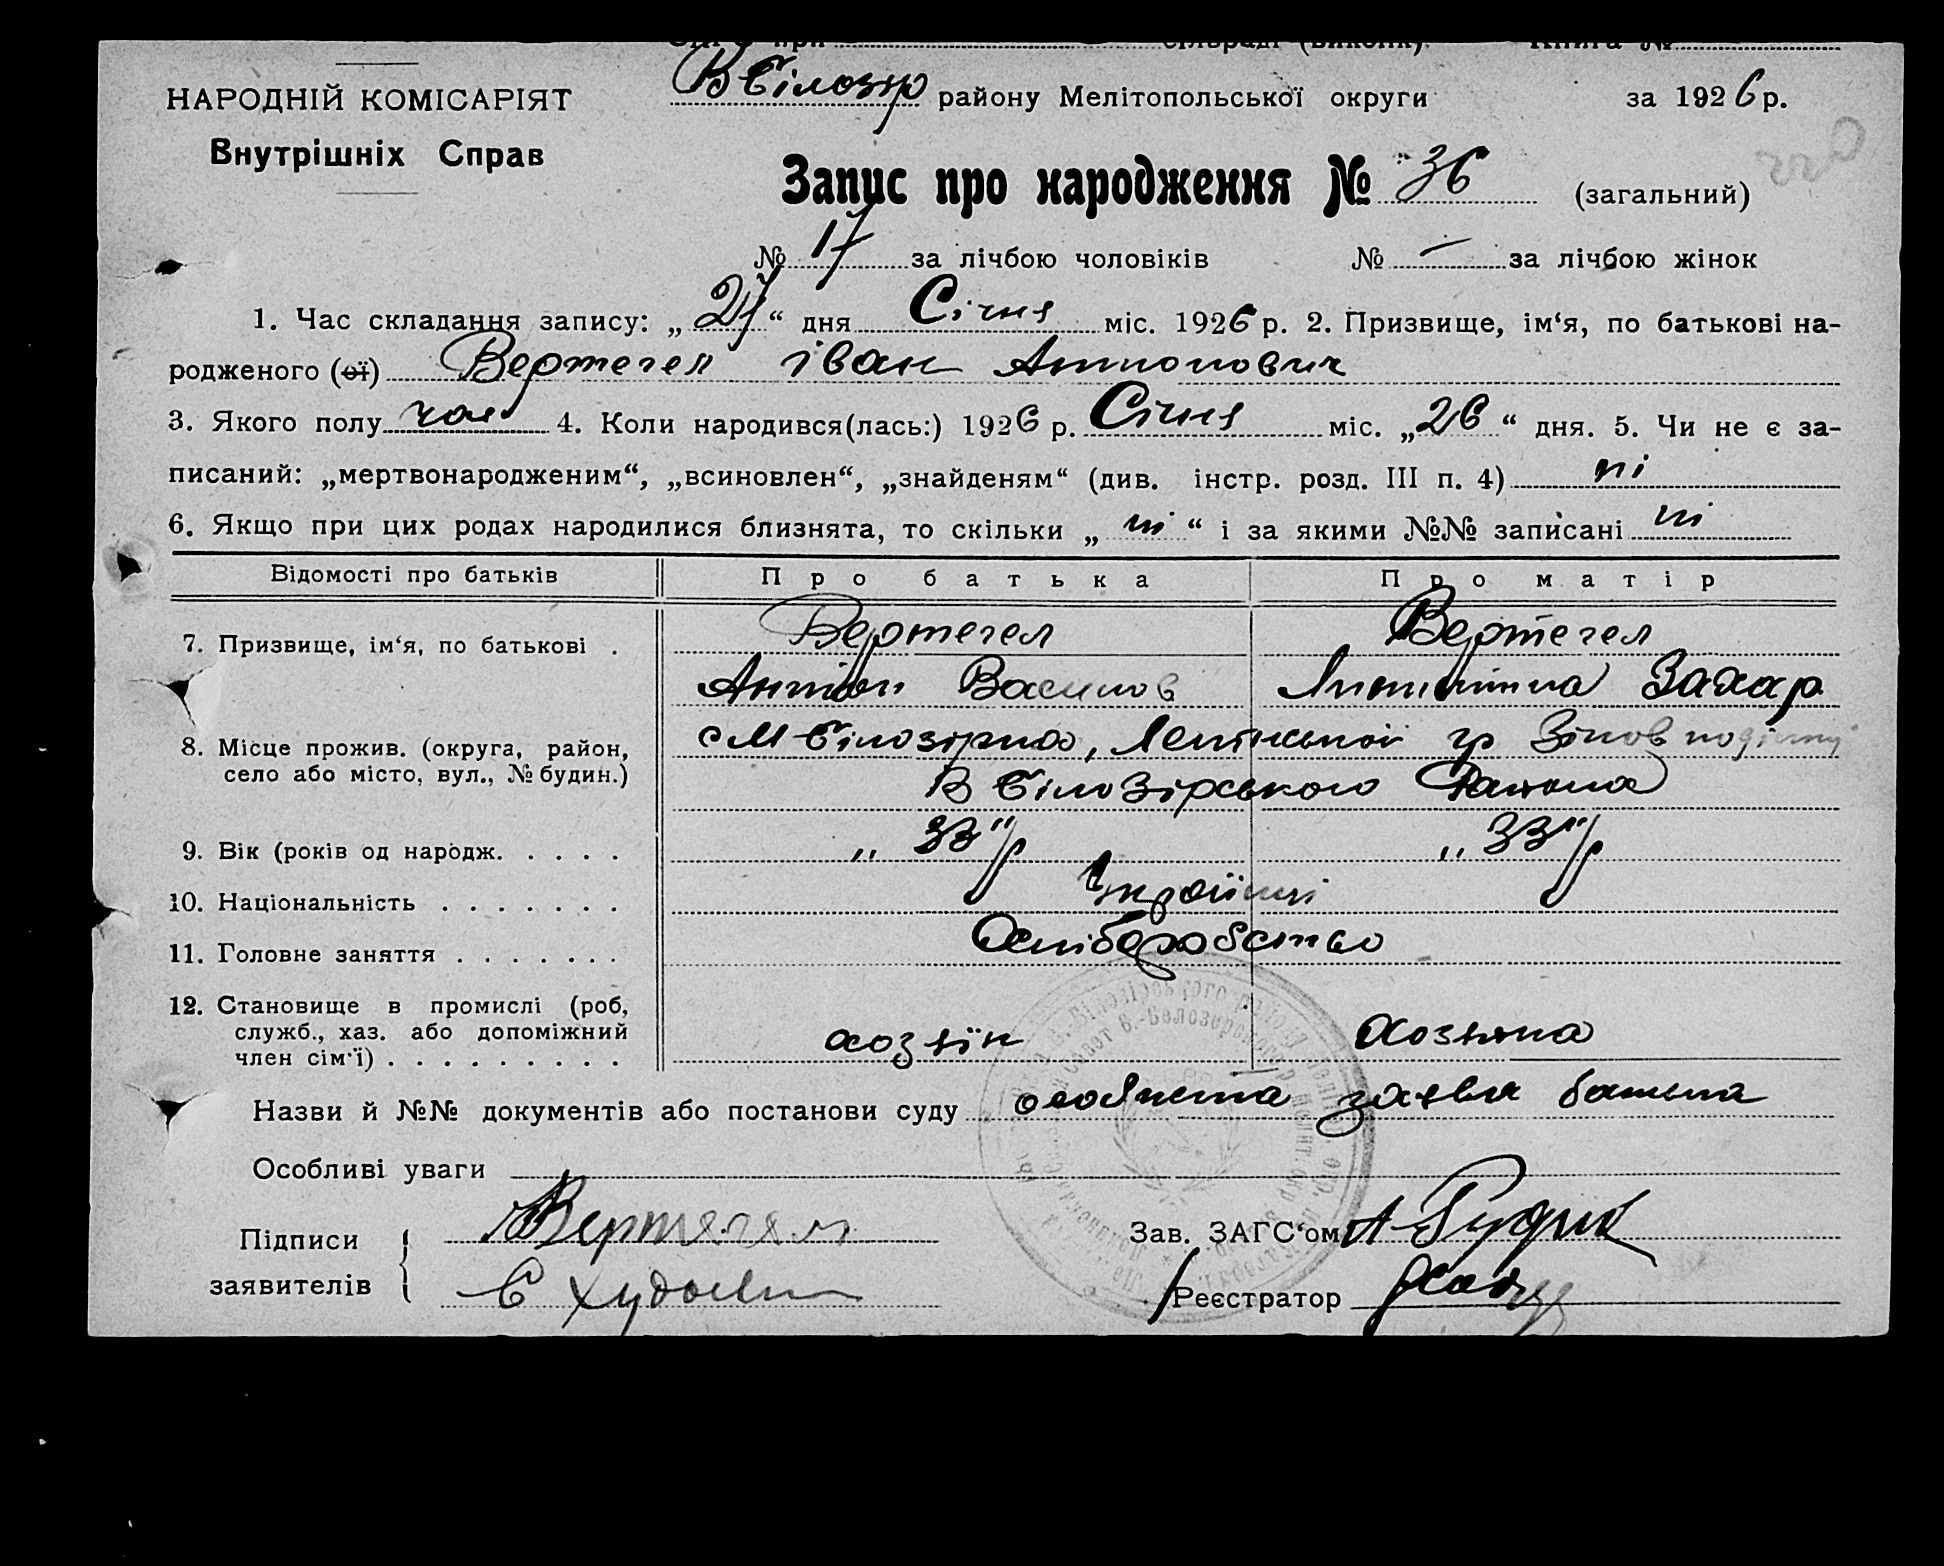 сільраді (виконк). Книга №
ВБілозір району Мелітопольської округи за 1926 р.
НАРОДНІЙ КОМІСАРІЯТ
Внутрішніх Справ
Запис про народження № 36 (загальний)
№ 17 за лічбою чоловіків № — за лічбою жінок
1. Час складання запису: „27“ дня Січня міс. 1926 р. 2. Призвище, ім‘я, по батькові на-
родженого (ої) Вертегел Іван Антонович
3. Якого полу чол 4. Коли народився(лась:) 1926 р. Січня міс. „26“ дня. 5. Чи не є за-
писаний: „мертвонародженим“, „всиновлен“, „знайденям“ (див. інстр. розд. III п. 4) ні
6. Якщо при цих родах народилися близнята, то скільки „ні“ і за якими №№ записані ні
Відомості про батьків Про батька Про матір
7. Призвище, ім‘я, по батькові . Вертегел Вертегел
Антон Васильов Захар
8. Місце прожив. (округа, район, с М Білозірка,
село або місто, вул., № будин.) В Білозірського Района
9. Вік (років од народж. . . . . „33“ р „33“ р
10. Національність . . . . . . . Українці
11. Головне заняття . . . . . . . Хліборобство
12. Становище в промислі (роб,
служб., хаз. або допоміжний хозяїн хозяйка
член сім‘ї) . . . . . . . . .
Назви й №№ документів або постанови суду особиста заява батька
Особливі уваги
Підписи Вертегел Зав. ЗАГС‘ом А Рудик
заявителів Є Реєстратор